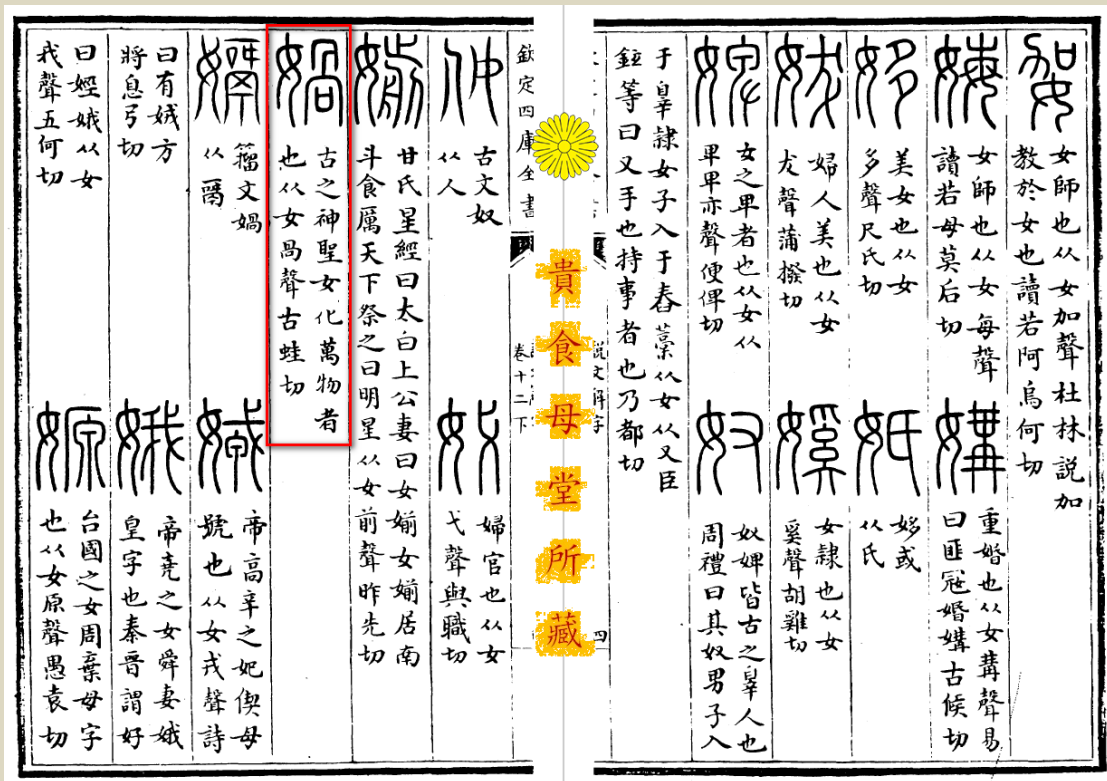 妿
女師也从女加聲杜林說加
教於女也讀若阿烏何切
娒
女師也从女每聲
讀若母莫后切
媾
重婚也从女冓聲易
曰匪冠婚媾古候切
姼
美女也从女
多聲尺氏切
㚶
姼或
从氏
妭
婦人美也从女
犮聲蒲撥切
㜎
女隷也从女
奚聲胡雞切
婢
女之卑者也从女从
卑卑亦聲便俾切
奴
奴婢皆古之辠人也
周禮曰其奴男子入
于辠隷女子入于舂藁从女从又臣
鉉等曰又手也持事者也乃都切
說文解字
四
貴食母堂所藏
欽定四庫全書
卷十二下
㐐
古文奴
从人
㚤
婦官也从女
弋聲與職切
媊
甘氏星經曰太白上公妻曰女媊女媊居南
斗食厲天下祭之曰明星从女前聲昨先切
媧
古之神聖女化萬物者
也从女咼聲古蛙切
籀文媧
从
娀
帝高辛之妃偰母
號也从女戎聲詩
曰有娀方
將息弓切
娥
帝堯之女舜妻娥
皇字也秦晉謂好
曰娙娥从女
我聲五何切
嫄
台國之女周棄母字
也从女原聲愚袁切